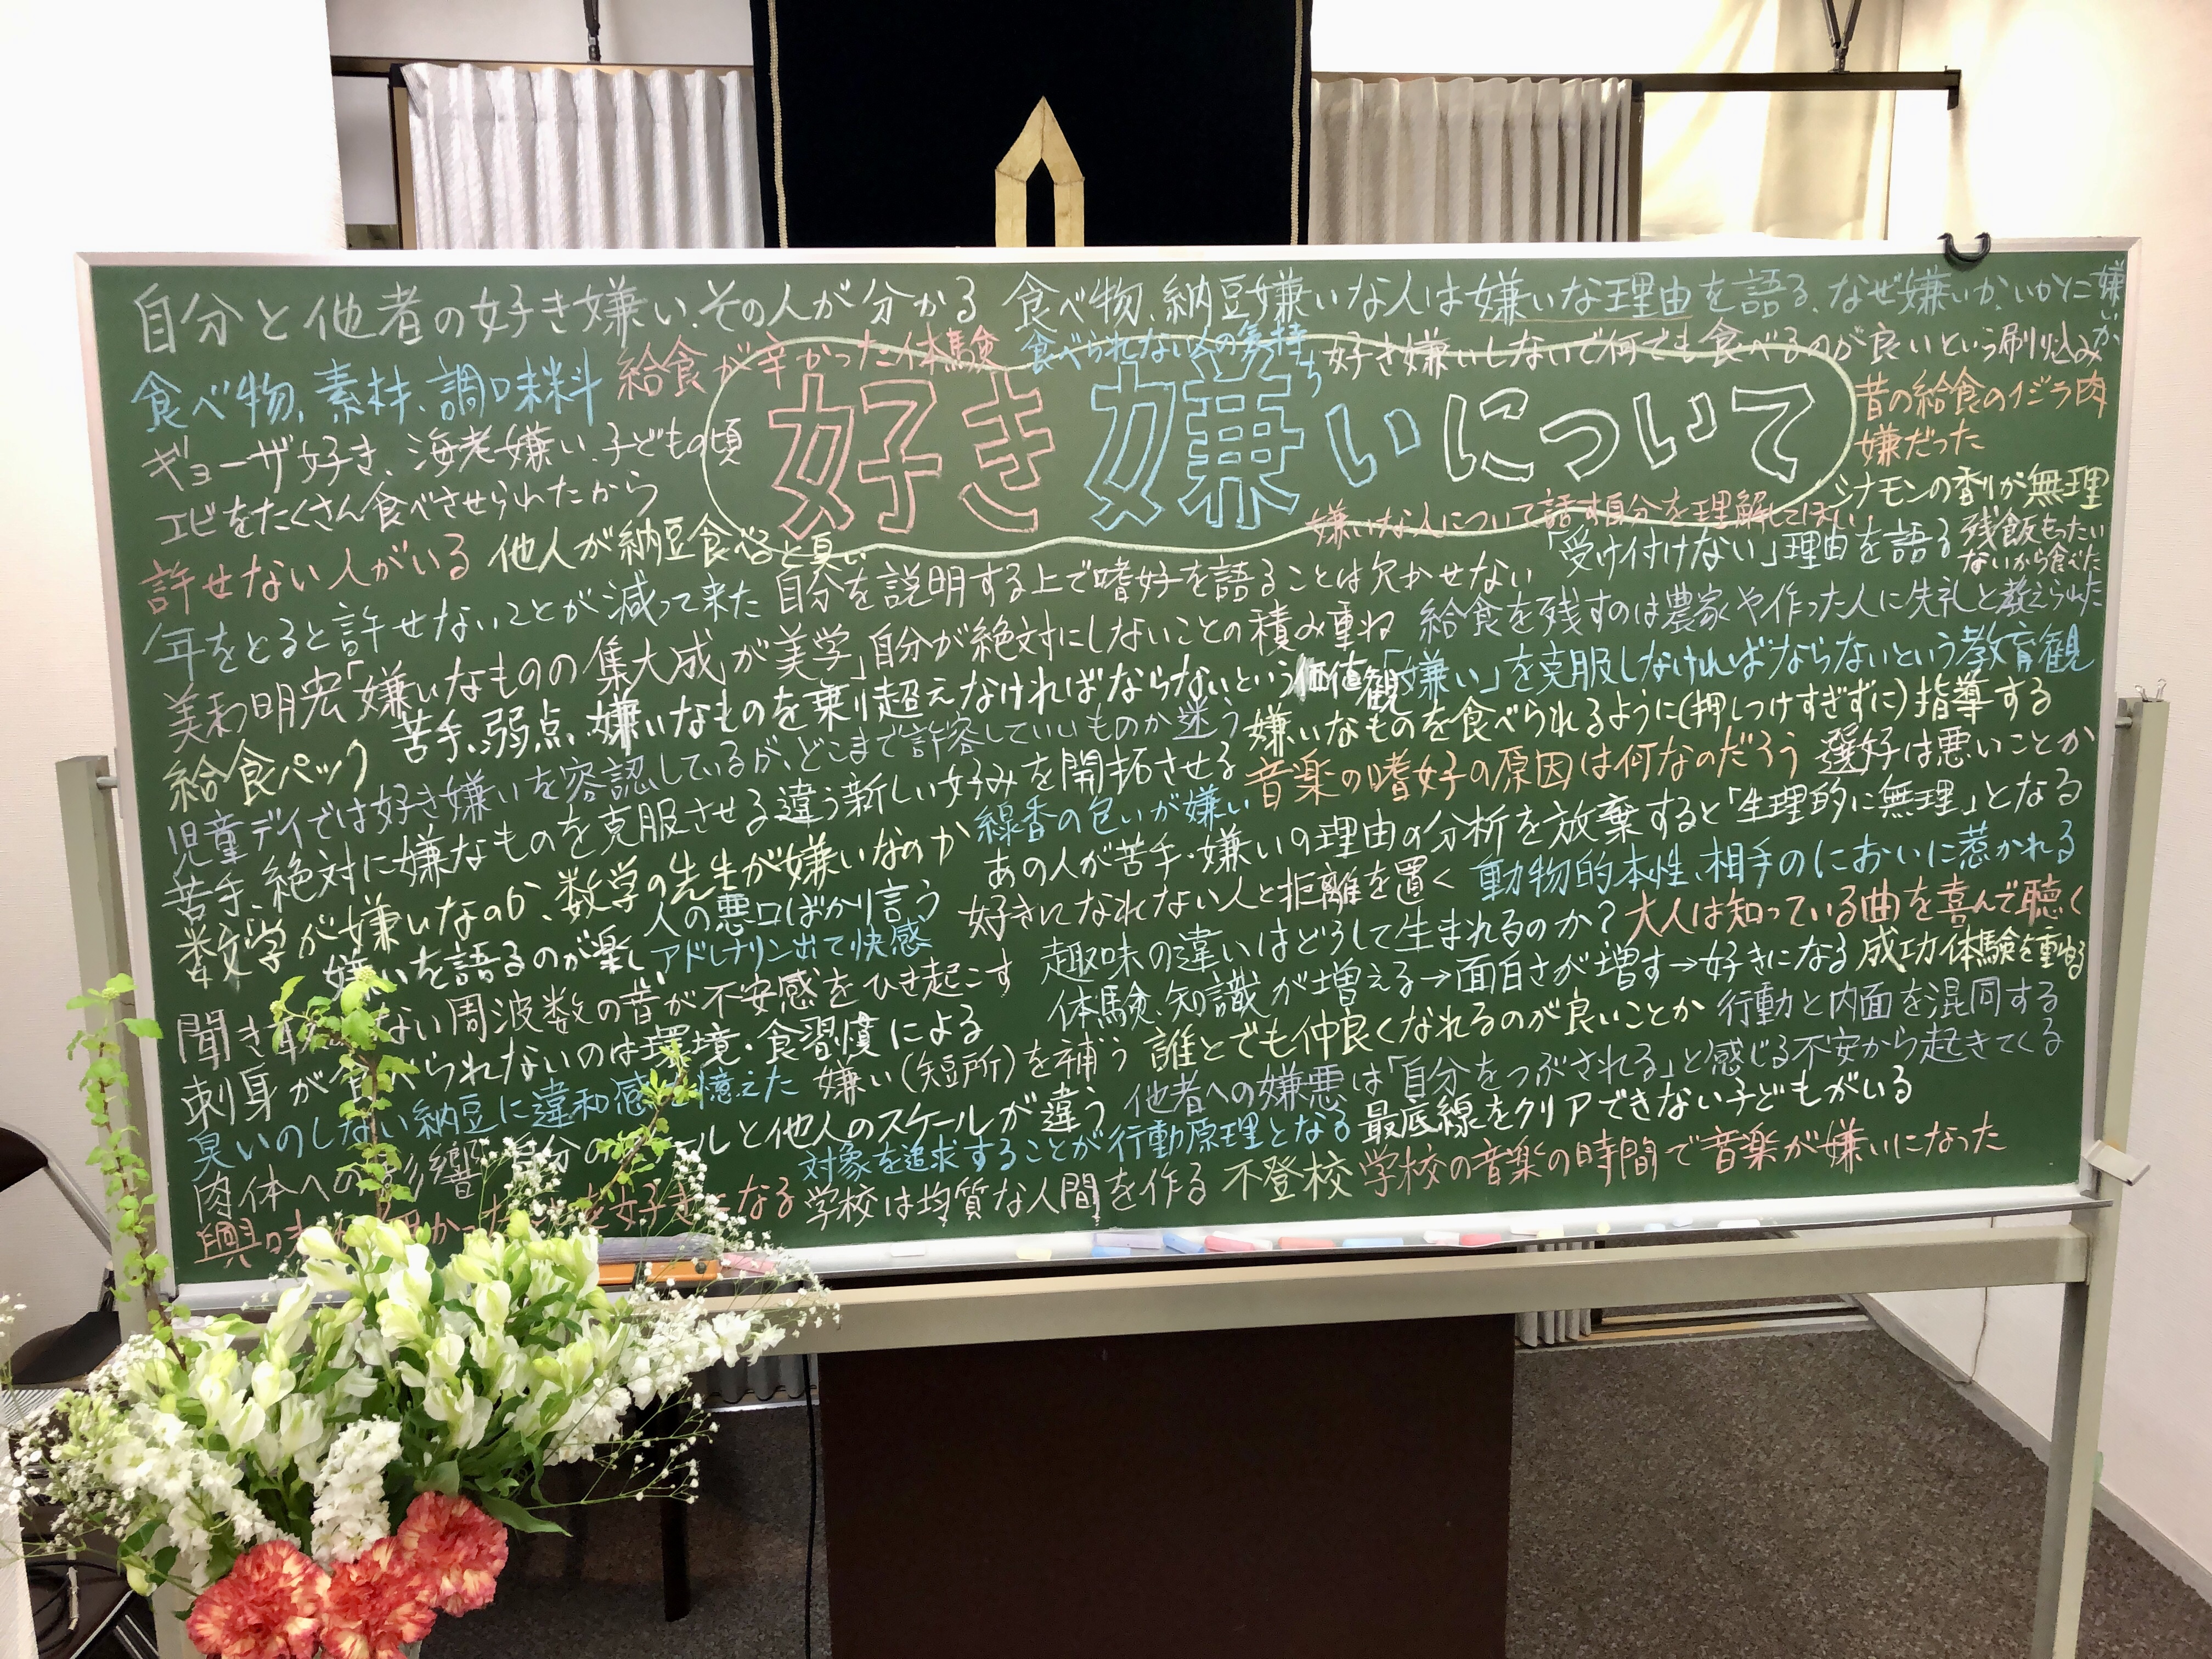 自分と他者の好き嫌い、その人が分かる
食べ物、納豆嫌いな人は嫌いな理由を語る、なぜ嫌いか、いかに嫌いか
食べ物、素材、調味料
給食が辛かった体験
食べられない人の気持ち
好き嫌いしないで何でも食べるのが良いという刷り込み
好き嫌いについて
昔の給食のイジラ肉
嫌だった
ギョーザ好き、海老嫌い、子どもの頃
エビをたくさん食べさせられたから
シナモンの香りが無理
嫌いな人について話す自分を理解してほしい
許せない人がいる
他人が納豆食べると臭い
「受け付けない」理由を語る
残飯もったい
ないから食べた
年をとると許せないことが減って来た
自分を説明する上で嗜好を語ることは欠かせない
給食を残すのは農家や作った人に失礼と教えられた
美輪明宏「嫌いなものの集大成が美学」自分が絶対にしないことの積み重ね
「嫌い」を克服しなければならないという教育観
給食パック
苦手、弱点、嫌いなものを乗り超えなければならないという価値観
嫌いなものを食べられるように(押しつけすぎずに)指導する
児童デイでは好き嫌いを容認しているが、どこまで許容していいものか迷う
音楽の嗜好の原因は何なのだろう
選好は悪いことか
苦手、絶対に嫌なものを克服させる違う新しい好みを開拓させる
線香の匂いが嫌い
あの人が苦手・嫌いの理由の分析を放棄すると「生理的に無理」となる
数学が嫌いなのか、数学の先生が嫌いなのか
人の悪口ばかり言う
好きになれない人と距離を置く
動物的本性、相手のにおいに惹かれる
嫌いを語るのが楽しい
アドレナリン出て快感
趣味の違いはどうして生まれるのか?
大人は知っている曲を喜んで聴く
聞き ない周波数の音が不安感をひき起こす
体験、知識が増える→面白さが増す→好きになる
成功体験を重ねる
刺身が食べられないのは環境・食習慣による
嫌い(短所)を補う
誰とでも仲良くなれるのが良いことか
行動と内面を混同する
臭いのしない納豆に違和感を憶えた
他者への嫌悪は「自分をつぶされる」と感じる不安から起きてくる
肉体への影響
自分の ールと他人のスケールが違う
対象を追求することが行動原理となる
最底線をクリアできない子どもがいる
興味 を好きになる
学校は均質な人間を作る
不登校
学校の音楽の時間で音楽が嫌いになった